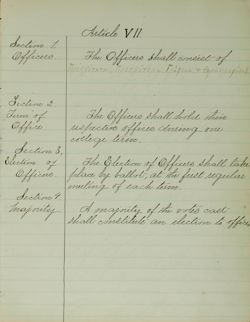 Article VII.
Section 1. Officers.
The Officers shall consist of
Section 2. Term of Office.
The Officers shall hold their
respective offices during one
college term.
Section 3. Election of Officers
The Election of Officers shall take
place by ballot, at the first regular
meeting of each term.
Section 4. Majority.
A majority of the votes cast
shall constitute an election to office